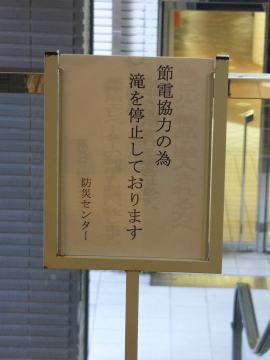 節電協力の為
滝を停止しております
防災センター